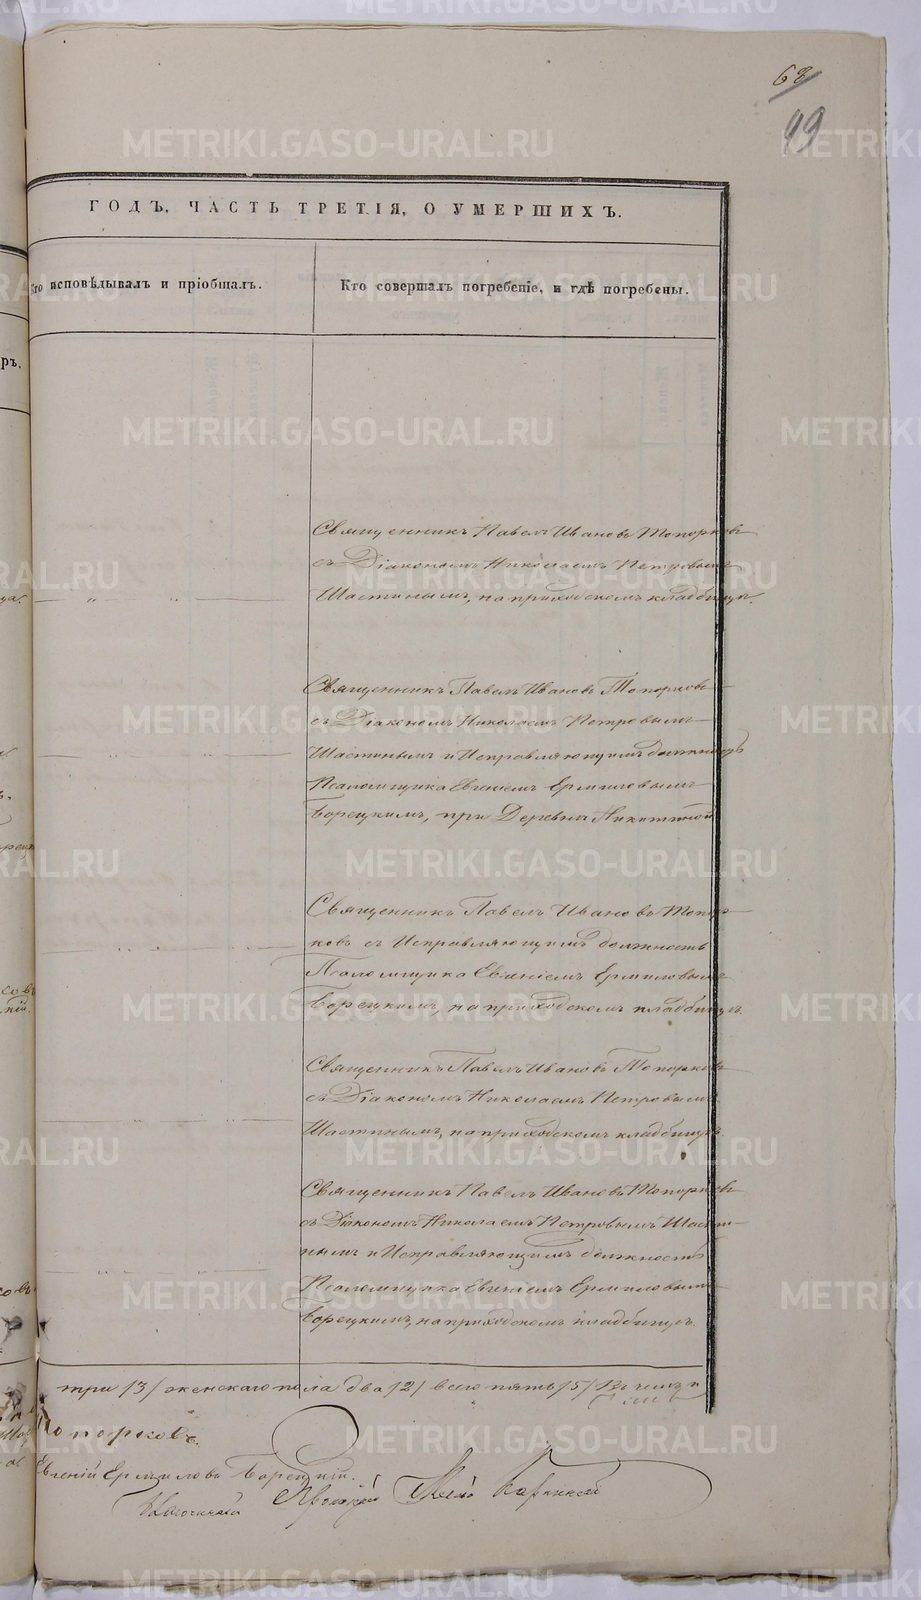 68
99
ГОДЪ, ЧАСТЬ ТРЕТІЯ, О УМЕРШИХЪ.
Кто исповѣдывалъ и пріобщалъ.
Кто совершалъ погребеніе, и гдѣ погребены.
Священникъ Павелъ Ивановъ Топорковъ
съ Діакономъ Николаемъ Петровымъ
Шастинымъ, на приходскомъ кладбищѣ.
Священникъ Павелъ Ивановъ Топорковъ
съ Діакономъ Николаемъ Петровымъ
Шастинымъ и Исправляющимъ должность
Псаломщика Евгеніемъ Ермиловымъ
Борецкимъ, при Деревнѣ Никитиной
Священникъ Павелъ Ивановъ Топор-
ковъ съ Исправляющимъ должность
Псаломщика Евгеніемъ Ермиловымъ
Борецкимъ, на приходскомъ кладбищѣ.
Священникъ Павелъ Ивановъ Топорковъ
съ Діакономъ Николаемъ Петровымъ
Шастинымъ, на приходскомъ кладбищѣ.
Священникъ Павелъ Ивановъ Топорковъ
съ Діакономъ Николаемъ Петровымъ Шасти-
нымъ и Исправляющимъ должность
Псаломщика Евгеніемъ Ермиловымъ
Борецкимъ, на приходскомъ кладбищѣ.
три /3/ женскаго пола два /2/ всего пять /5/
Топорковъ.
Евгеній Ермиловъ Борецкій.
METRIKI.GASO-URAL.RU